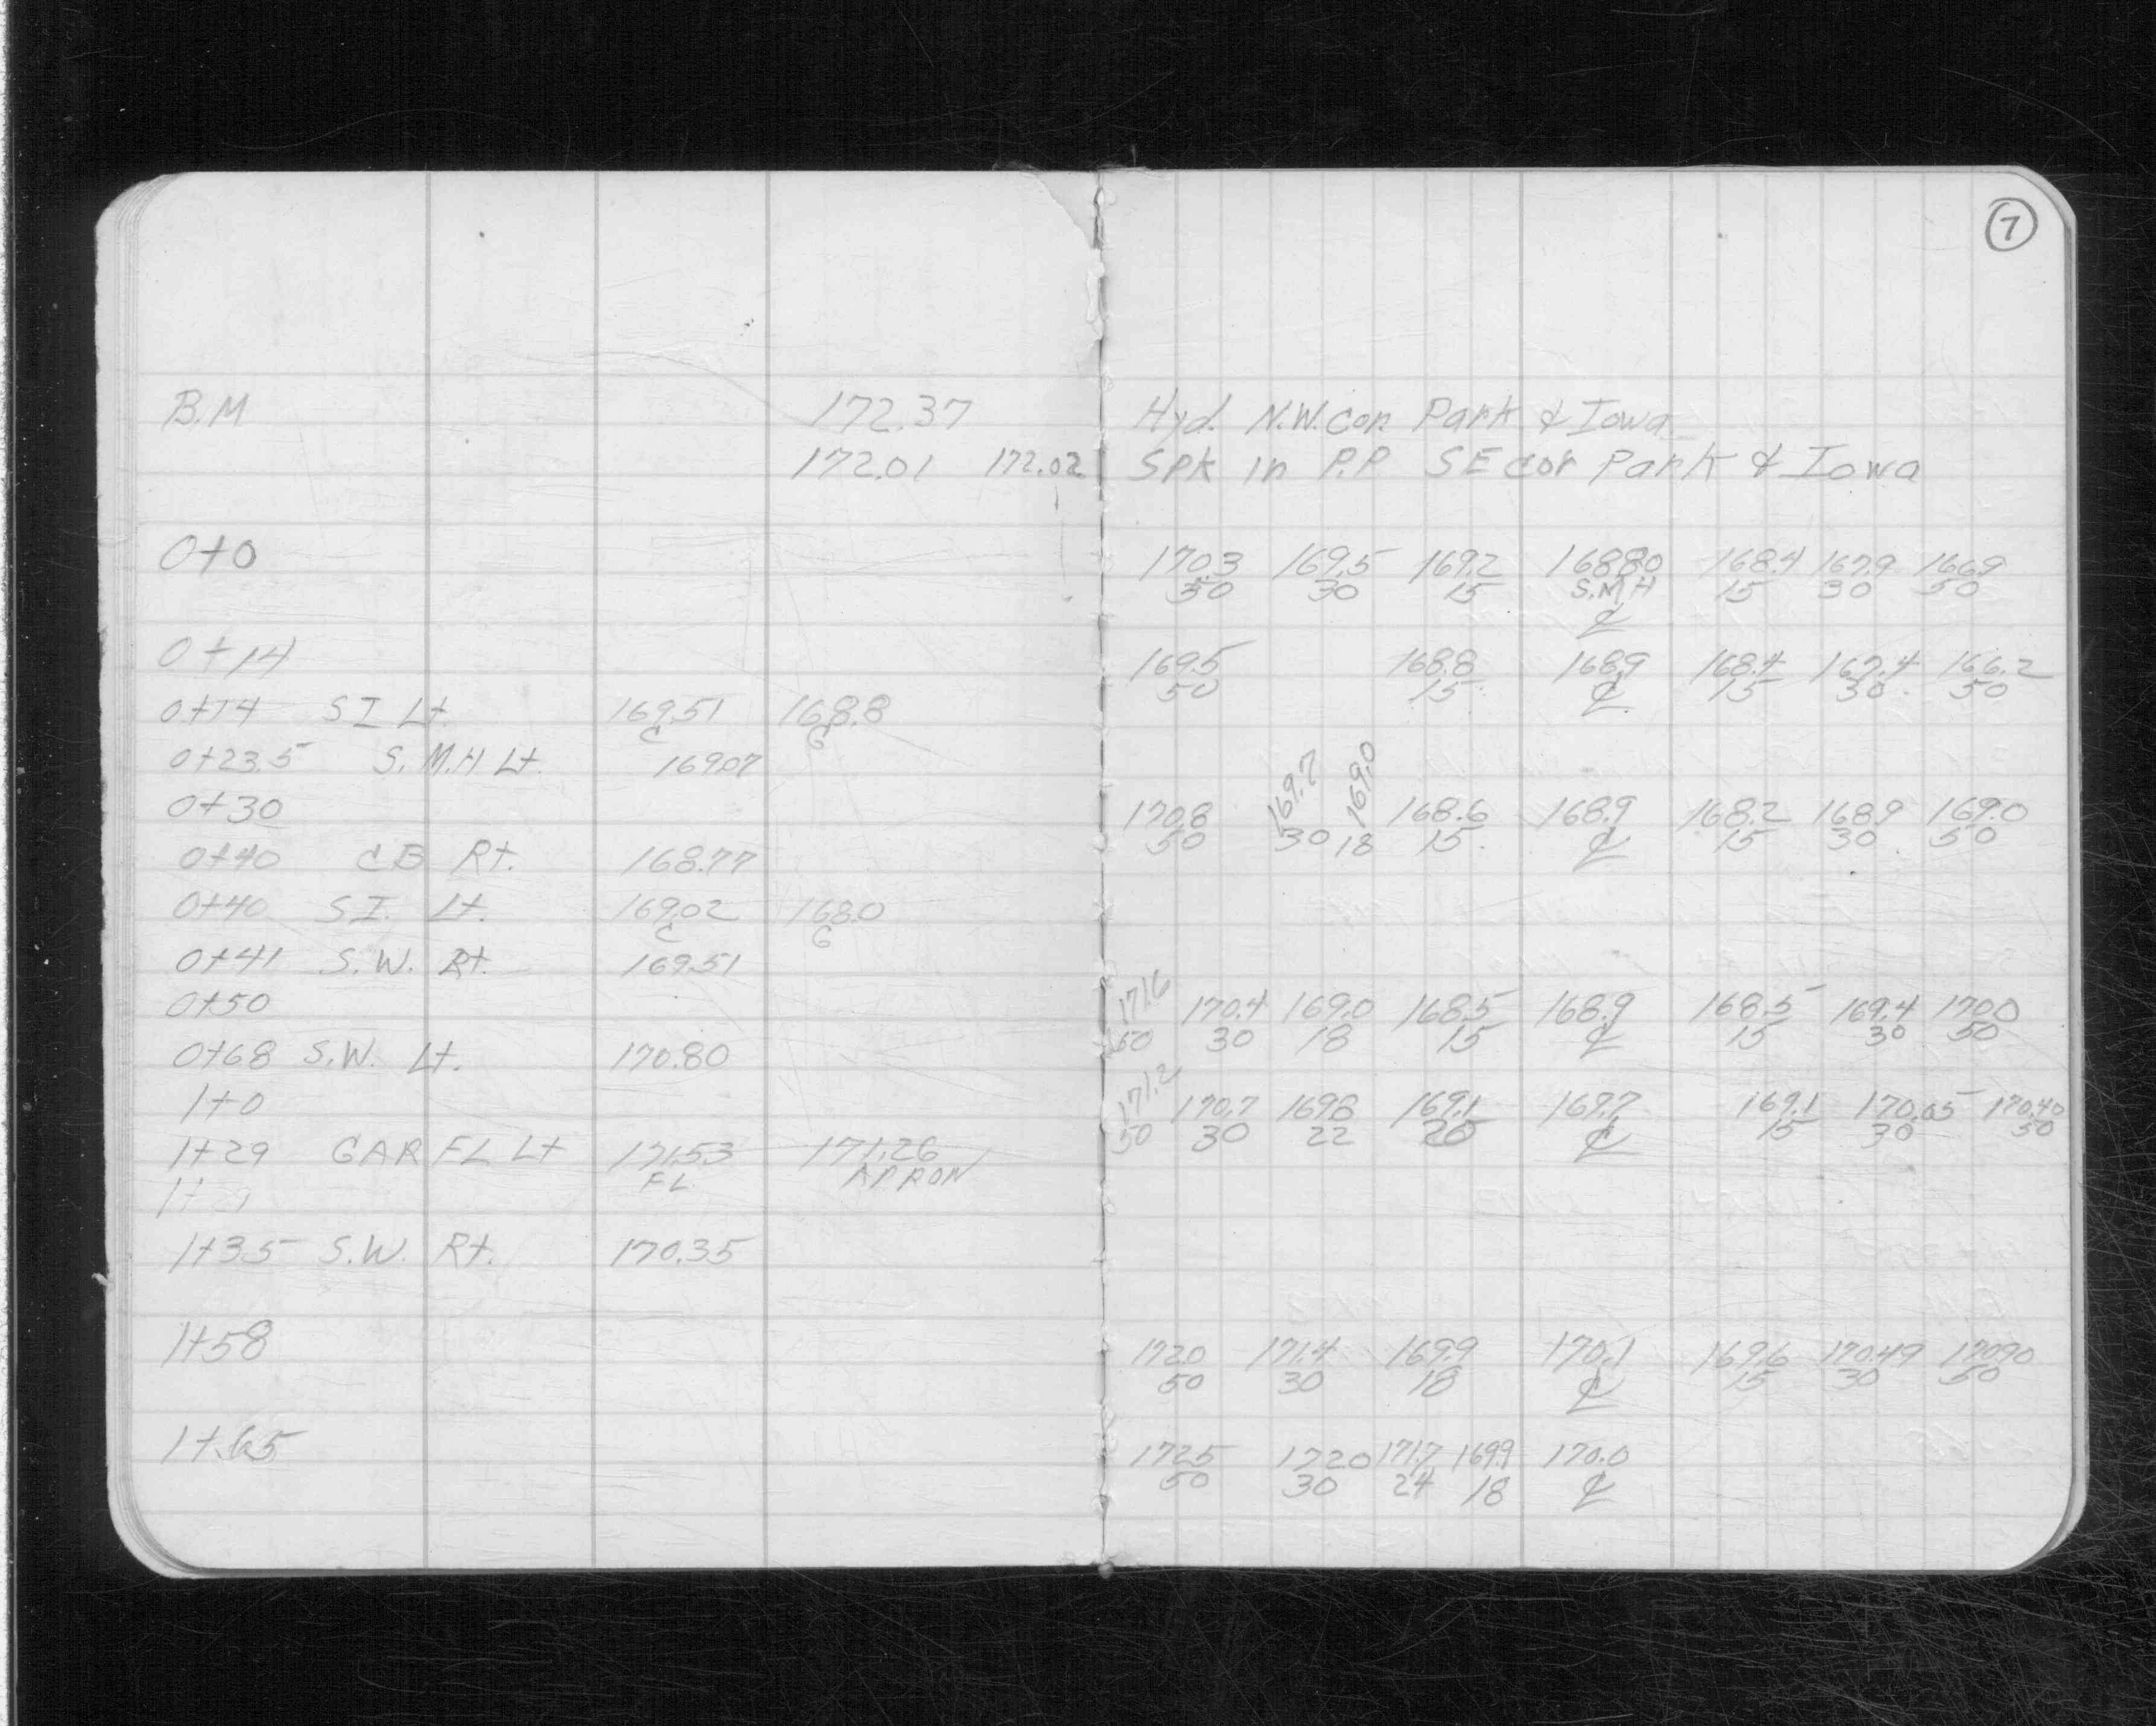 7
B.M 172.37 Hyd. N.W. Cor. Park & Iowa
172.01 172.02 Spk in P.P SE cor Park & Iowa
0+0 170.3 169.5 169.2 168.80 168.4 167.9 166.9
50 30 15 S.M.H 15 30 50
℄
0+14 169.5 168.8 168.9 168.4 167.4 166.2
50 15 ℄ 15 30 50
0+14 SI Lt. 169.51 168.8
C G
0+23.5 S.M.H Lt. 169.07
169.7 169.0
0+30 170.8 168.6 168.9 168.2 168.9 169.0
50 30 18 15 ℄ 15 30 50
0+40 CB Rt. 168.77
0+40 SI. Lt. 169.02 168.0
C G
0+41 S.W. Rt. 169.51
0+50 171.6 170.4 169.0 168.5 168.9 168.5 169.4 170.0
50 30 18 15 ℄ 15 30 50
0+68 S.W. Lt. 170.80
1+0 171.2 170.7 169.8 169.1 169.1 170.65 170.40
50 30 22 20 ℄ 15 30 50
1+29 GAR FL Lt 171.53 171.26
FL APRON
1+35 S.W. Rt. 170.35
1+58 172.0 171.4 169.9 170.1 169.6 170.49 170.90
50 30 18 ℄ 15 30 50
1+65 172.5 172.0 171.7 169.9 170.0
50 30 24 18 ℄